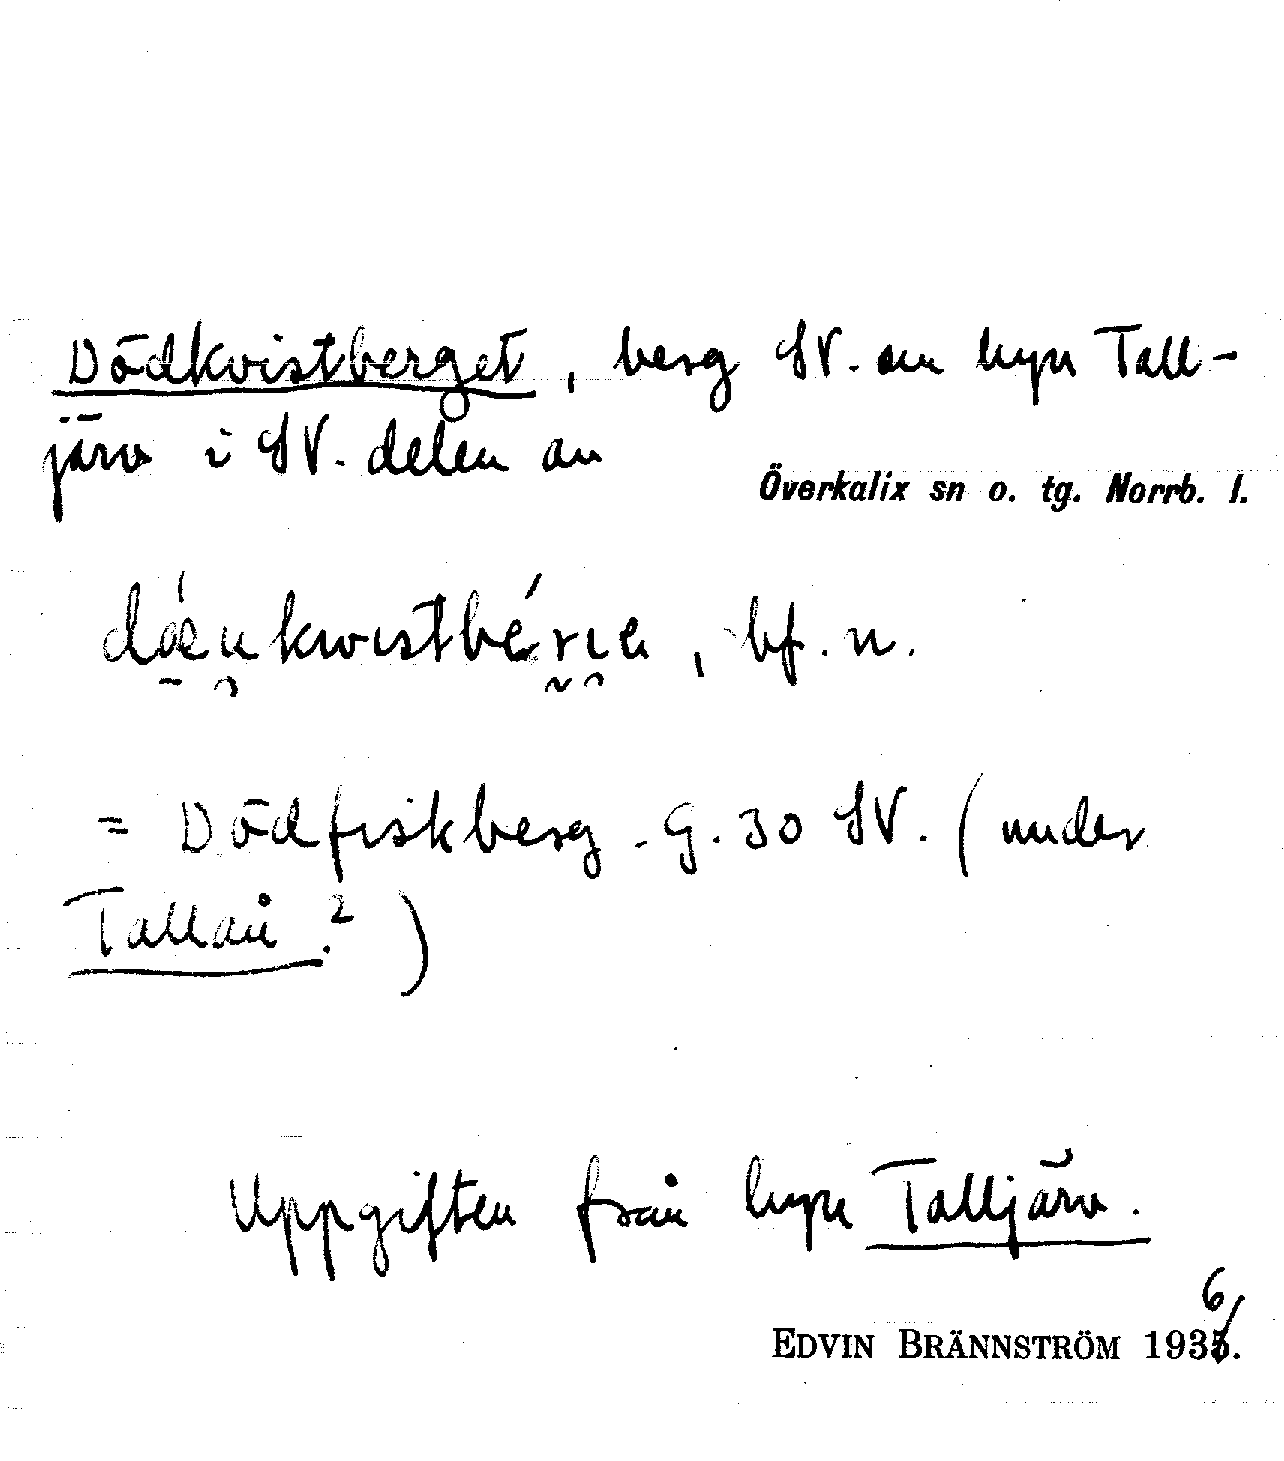 Dödkvistberget, berg SV. om byn Tall-
järv i SV. delen av
Överkalix sn o. tg. Norrb. l.
bf. n.
= Dödfiskberg. G. 30 SV. (under
Tallån?)
Uppgiften från byn Talljärv.
6
EDVIN BRÄNNSTRÖM 1935.